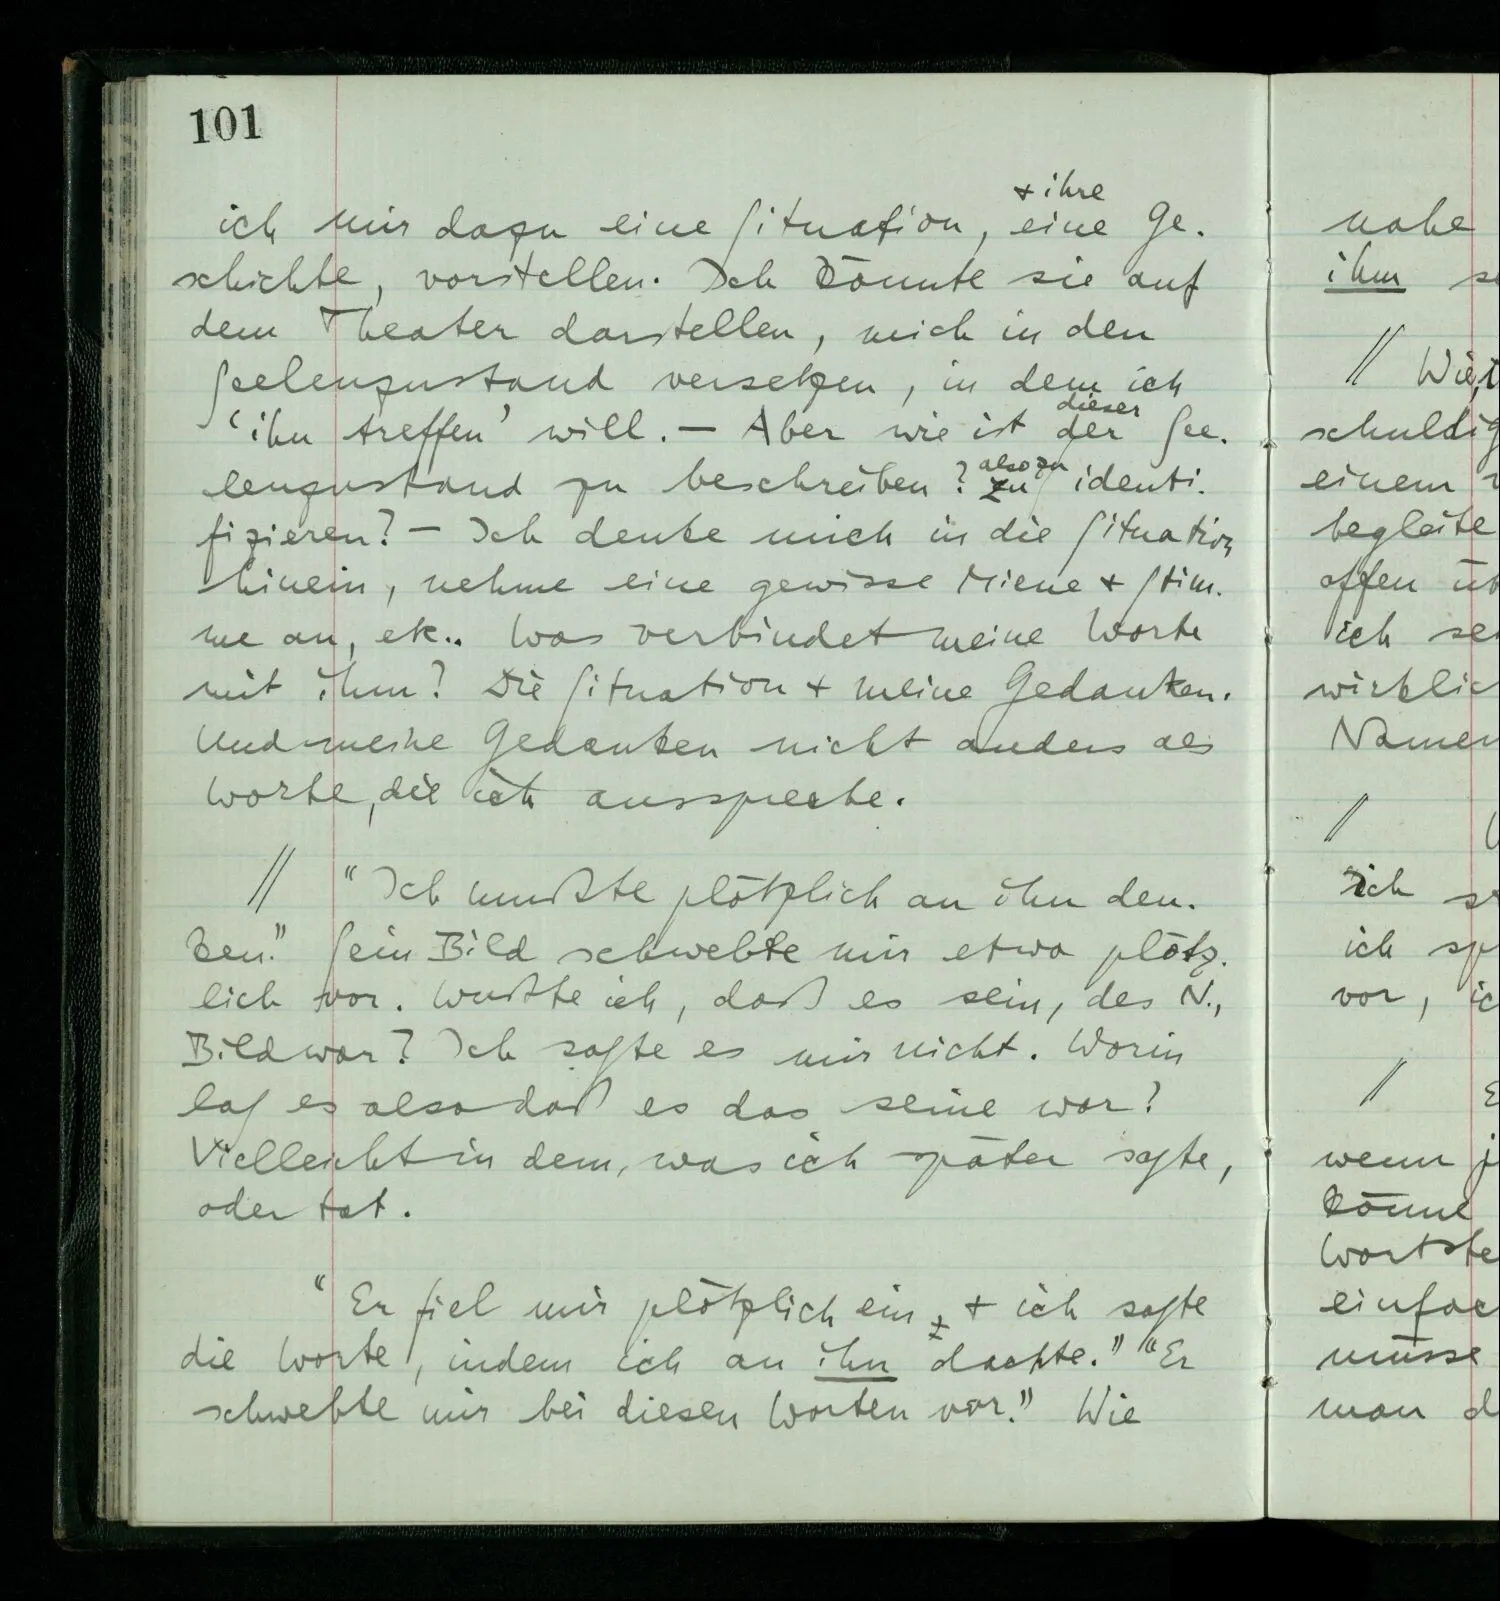 101
+ ihre
ich mir dazu eine Situation, eine Ge-
schichte, vorstellen. Ich könnte sie auf
dem Theater darstellen, mich in den
Seelenzustand versetzen, in dem ich
‘ihn treffen’ will. — Aber wie ist der See-
dieser
lenzustand zu beschreiben? zu identi-
also zu
fizieren? — Ich denke mich in die Situation
hinein, nehme eine gewisse Miene + Stim-
me an, etc.. Was verbindet meine Worte
mit ihm? Die Situation + meine Gedanken.
Und meine Gedanken nicht anders als
Worte, die ich ausspreche.
// “Ich mußte plötzlich an ihn den-
ken.” Sein Bild schwebte mir etwa plötz-
lich vor. Wußte ich, daß es sein, des N.,
Bild war? Ich sagte es mir nicht. Worin
lag es also daß es das seine war?
Vielleicht in dem, was ich später sagte,
oder tat.
“Er fiel mir plötzlich ein, + ich sagte
die Worte, indem ich an ihn dachte.” “Er
schwebte mir bei diesen Worten vor.” Wie
nahe
ihm
//
einem
ich
Namen
//
ich
ich
vor,
/
wenn
könne
müsse
man